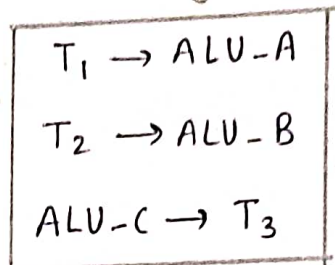 T₁ → ALU-A
T₂ → ALU-B
ALU-C → T₃